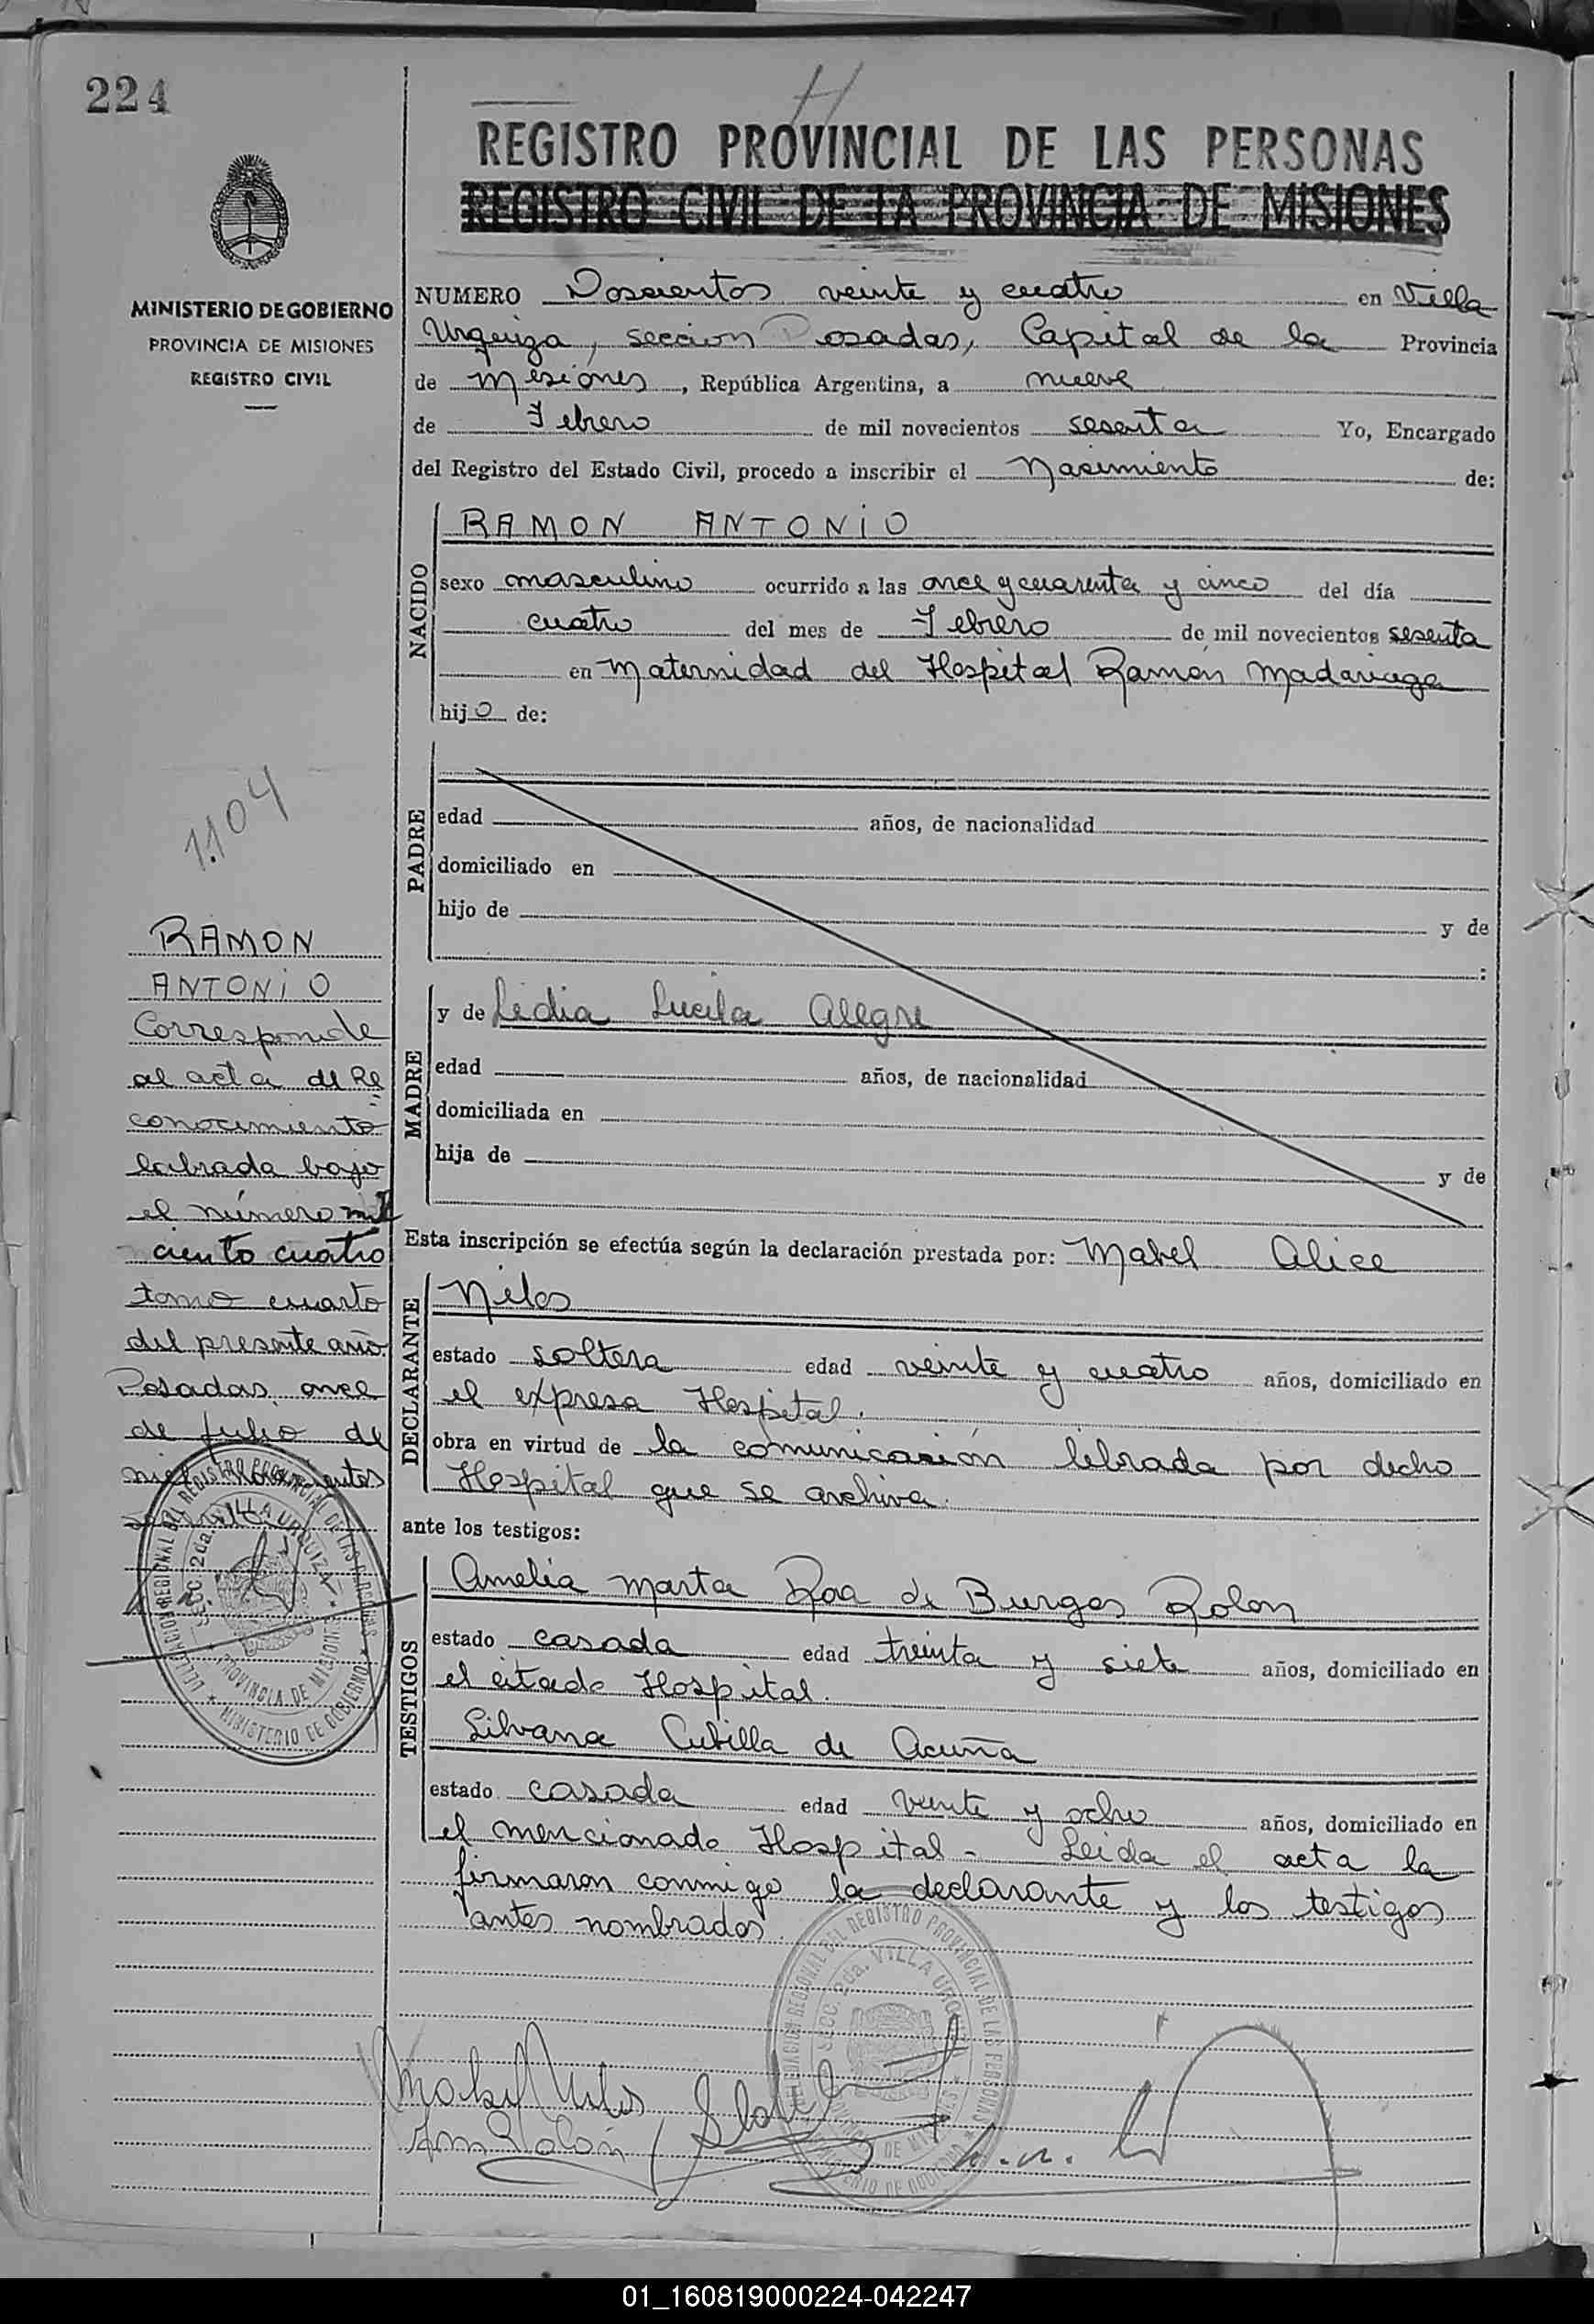 224
REGISTRO PROVINCIAL DE LAS PERSONAS
REGISTRO CIVIL DE LA PROVINCIA DE MISIONES
MINISTERIO DE GOBIERNO
PROVINCIA DE MISIONES
REGISTRO CIVIL
NUMERO Doscientos veinte y cuatro en Villa
Urquiza, seccion Posadas, Capital de la Provincia
de Misiones, República Argentina, a nueve
de Febrero de mil novecientos sesenta Yo, Encargado
del Registro del Estado Civil, procedo a inscribir el Nacimiento de:
NACIDO
RAMON ANTONIO
sexo masculino ocurrido a las once y cuarenta y cinco del día
cuatro del mes de Febrero de mil novecientos sesenta
en Maternidad del Hospital Ramón Madariaga
hijo de:
PADRE
edad años, de nacionalidad
domiciliado en
hijo de y de
:
MADRE
y de Lidia Lucila Alegre
edad años, de nacionalidad
domiciliada en
hija de y de
Esta inscripción se efectúa según la declaración prestada por: Mabel Alice
DECLARANTE
Nilos
estado soltera edad veinte y cuatro años, domiciliado en
el expresa Hospital.
obra en virtud de la comunicación librada por dicho
Hospital que se archiva.
ante los testigos:
TESTIGOS
Amelia Marta Roa de Burgos Rolon
estado casada edad treinta y siete años, domiciliado en
el citado Hospital.
Silvana Cubilla de Acuña
estado casada edad veinte y ocho años, domiciliado en
el mencionado Hospital - Leida el acta la
firmaron conmigo la declarante y los testigos
antes nombrados.
1.104
RAMON
ANTONIO
Corresponde
al acta de Re
conocimiento
labrada bajo
el número mil
ciento cuatro
tomo cuarto
del presente año.
Posadas, once
de julio de
DELEGACION REGIONAL DEL REGISTRO PROVINCIAL DE LAS PERSONAS
SECC. 2da. VILLA URQUIZA
PROVINCIA DE MISIONES
MINISTERIO DE GOBIERNO
01_160819000224-042247